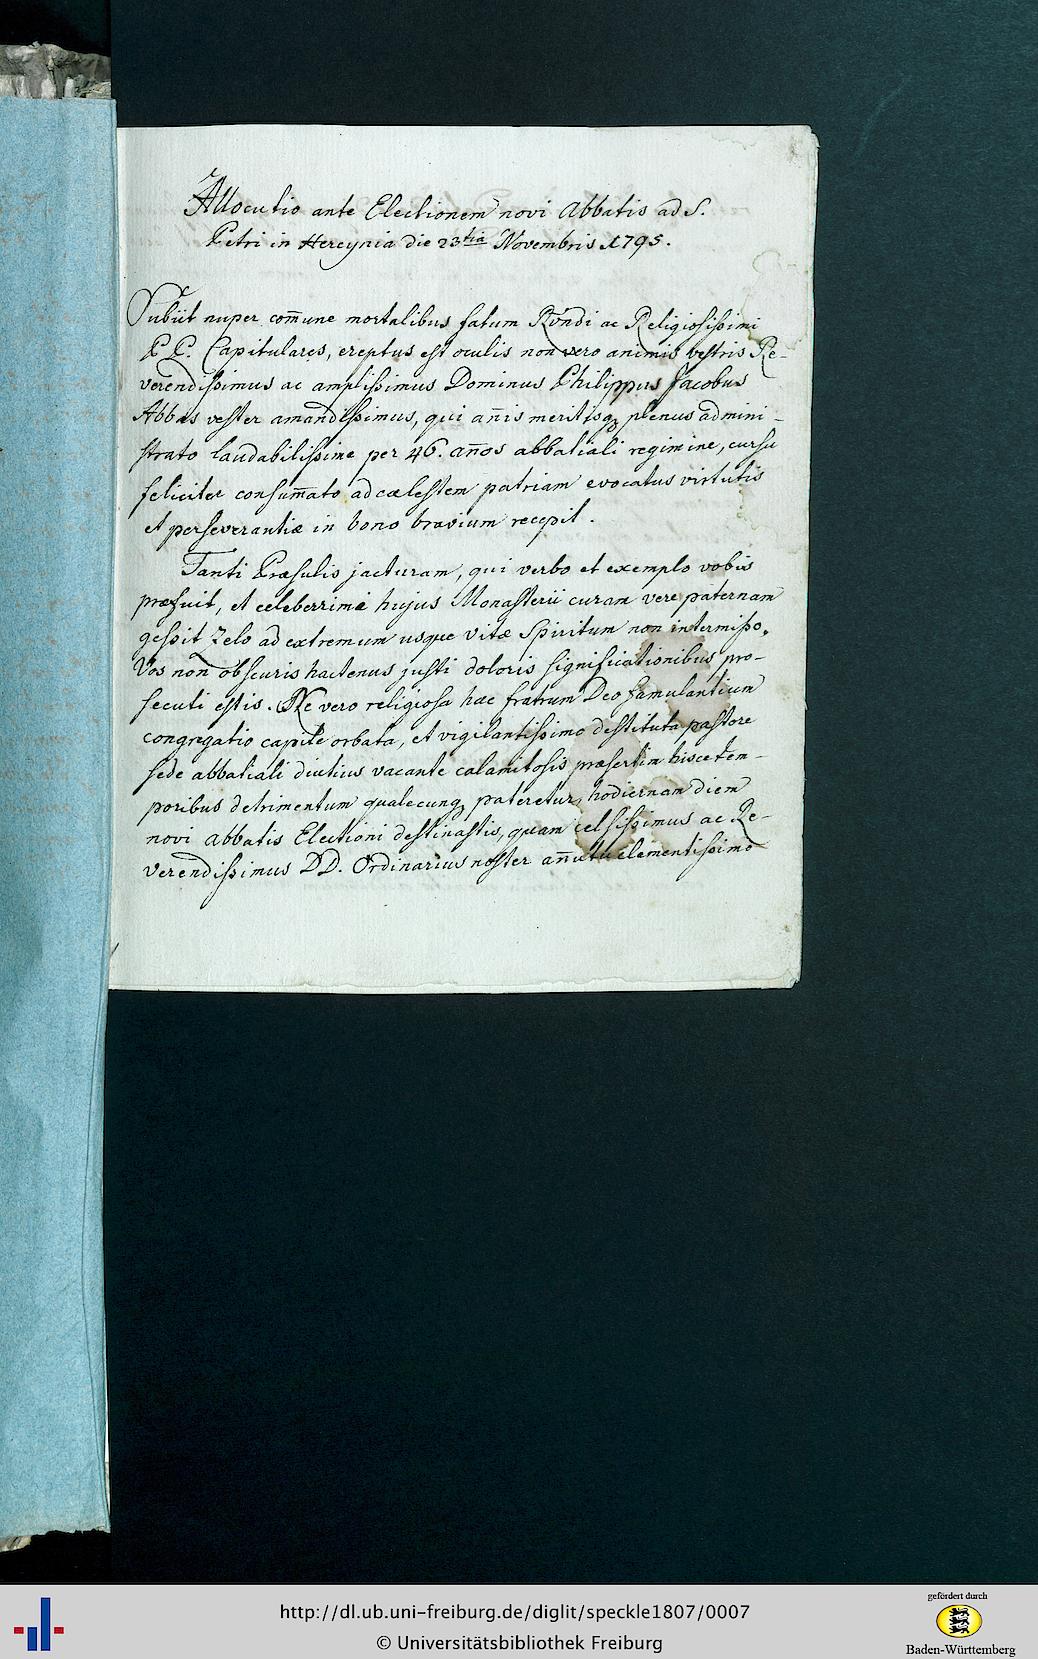 Allocutio ante Electionem novi Abbatis ad S.
Petri in Hercynia die 23tia Novembris 1795.
Subiit nuper com̄une mortalibus fatum Rvndi ac Religiosissimi
P P. Capitulares, ereptus est oculis non vero animis vestris Re-
verendissimus ac amplissimus Dominus Philippus Jacobus
Abbas vester amandissimus, qui an̄is meritisq; plenus admini-
strato laudabilissime per 46. an̄os abbatiali regimine, cursu
feliciter consum̄ato ad cælestem patriam evocatus virtutis
et perseverantiæ in bono bravium recepit.
Tanti Præsulis jacturam, qui verbo et exemplo vobis
præfuit, et celeberrimi hujus Monasterii curam vere paternam
gessit Zelo ad extremum usque vitæ Spiritum non intermisso,
Vos non obscuris hactenus justi doloris significationibus pro-
secuti estis. Ne vero religiosa hac fratrum Deo famulantium
congregatio capite orbata, et vigilantissimo destituta pastore
sede abbatiali diutius vacante calamitosis præsertim hisce tem-
poribus detrimentum qualecunq; pateretur, hodiernam diem
novi abbatis Electioni destinastis, quam celsissimus ac Re-
verendissimus DD. Ordinarius noster an̄utu clementissimo
http://dl.ub.uni-freiburg.de/diglit/speckle1807/0007
© Universitätsbibliothek Freiburg
gefördert durch
Baden-Württemberg